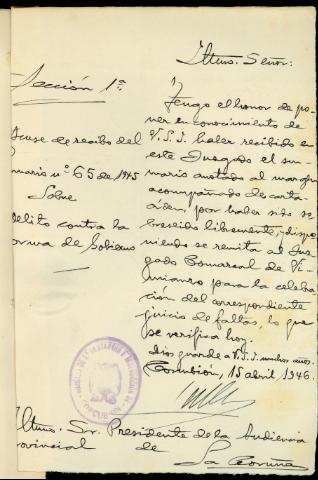 Iltmo. Señor:
Sección 1ª.
cuse de recibo del
mario nº 65 de 1945
Sobre
delito contra la
orma de Gobierno
Tengo el honor de po-
ner en conocimiento de
V.S.I. haber recibido en
este Juzgado el su-
mario anotado al margen
acompañado de carta-
órden, por haber sido so-
breseido libremente, y dispo-
niendo se remita al Juz-
gado Comarcal de Vi-
mianzo para la celebra-
ción del correspondiente
juicio de faltas, lo que
se verifica hoy.
Dios guarde a V.S.I. muchos años.
Corcubion, 15 abril 1946.
Iltmo. Sr. Presidente de la Audiencia
rovincial de
La Coruña